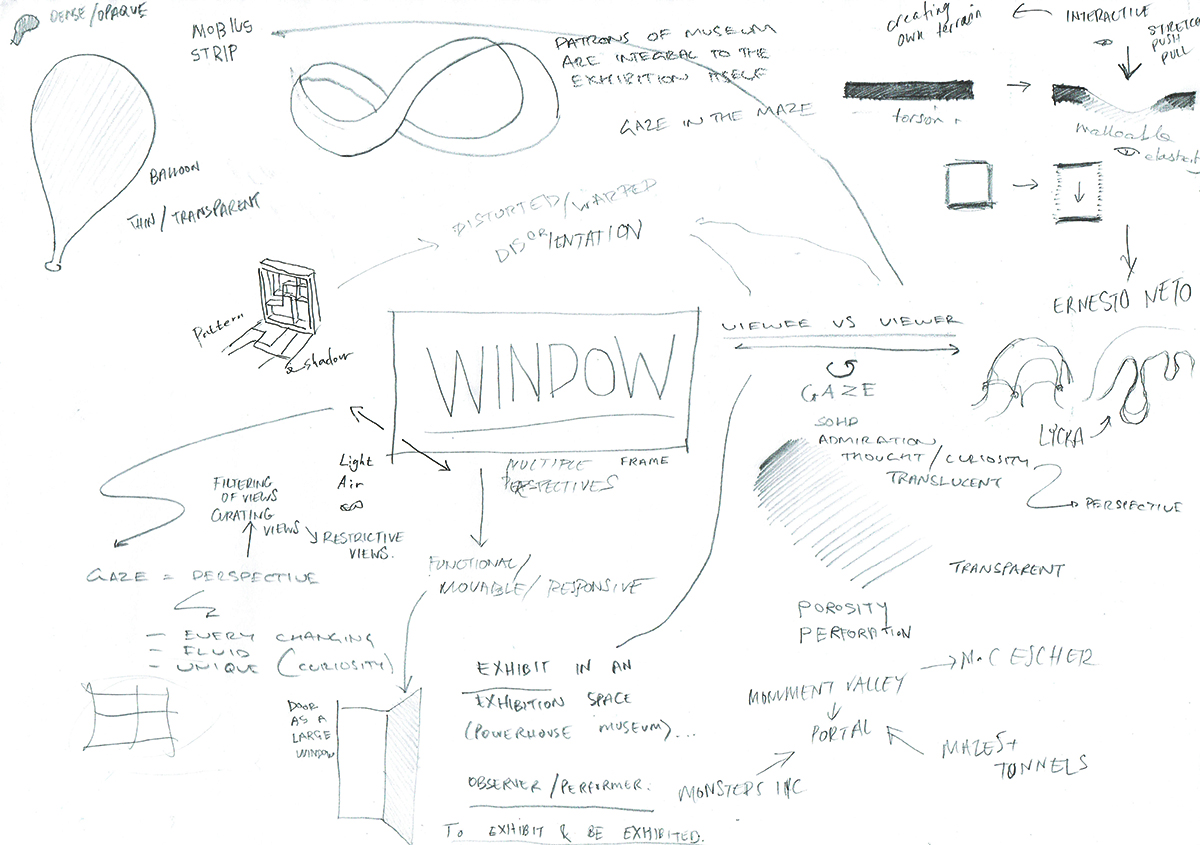 DENSE/OPAQUE
MOBIUS
STRIP
PATRONS OF MUSEUM
ARE INTEGRAL TO THE
EXHIBITION ITSELF
GAZE IN THE MAZE
creating
own terrain
INTERACTIVE
STRETCH
PUSH
PULL
malleable
BALLOON
THIN/TRANSPARENT
DISTORTED/WARPED
DISORIENTATION
ERNESTO NETO
LYCRA
Pattern
& shadow
WINDOW
FRAME
VIEWEE VS VIEWER
GAZE
SOLID
ADMIRATION
THOUGHT/CURIOSITY
TRANSLUCENT
PERSPECTIVE
TRANSPARENT
POROSITY
PERFORATION
MULTIPLE
PERSPECTIVES
Light
Air
FILTERING
OF VIEWS
CURATING
VIEWS
RESTRICTIVE
VIEWS.
GAZE = PERSPECTIVE
- EVERY CHANGING
- FLUID
- UNIQUE (CURIOSITY)
FUNCTIONAL/
MOVABLE/RESPONSIVE
DOOR
AS A
LARGE
WINDOW
EXHIBIT IN AN
EXHIBITION SPACE
(POWERHOUSE MUSEUM)...
OBSERVER/PERFORMER.
TO EXHIBIT & BE EXHIBITED.
M.C ESCHER
MONUMENT VALLEY
PORTAL
MAZES +
TONNELS
MONSTERS INC